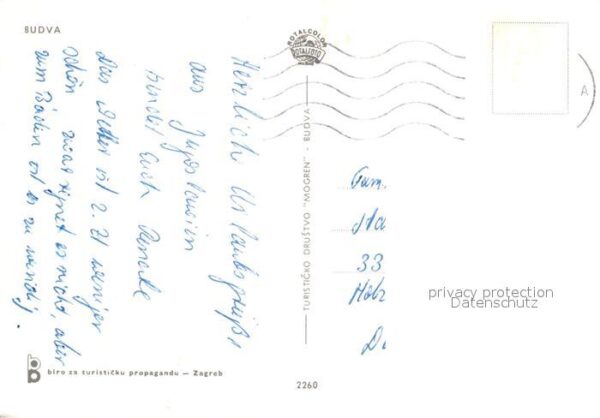 BUDVA
ROTALCOLOR
ROTALFOTO
Herzliche Urlaubsgrüße
aus Jugoslawien
sendet Euch Renate
Das Wetter ist z. Zt weniger
schön. zwar regnet es nicht, aber
zum Baden ist es zu windig.
TURISTIČKO DRUŠTVO "MOGREN" - BUDVA
Fam.
33
Holz
privacy protection
Datenschutz
biro za turističku propagandu — Zagreb
2260
A